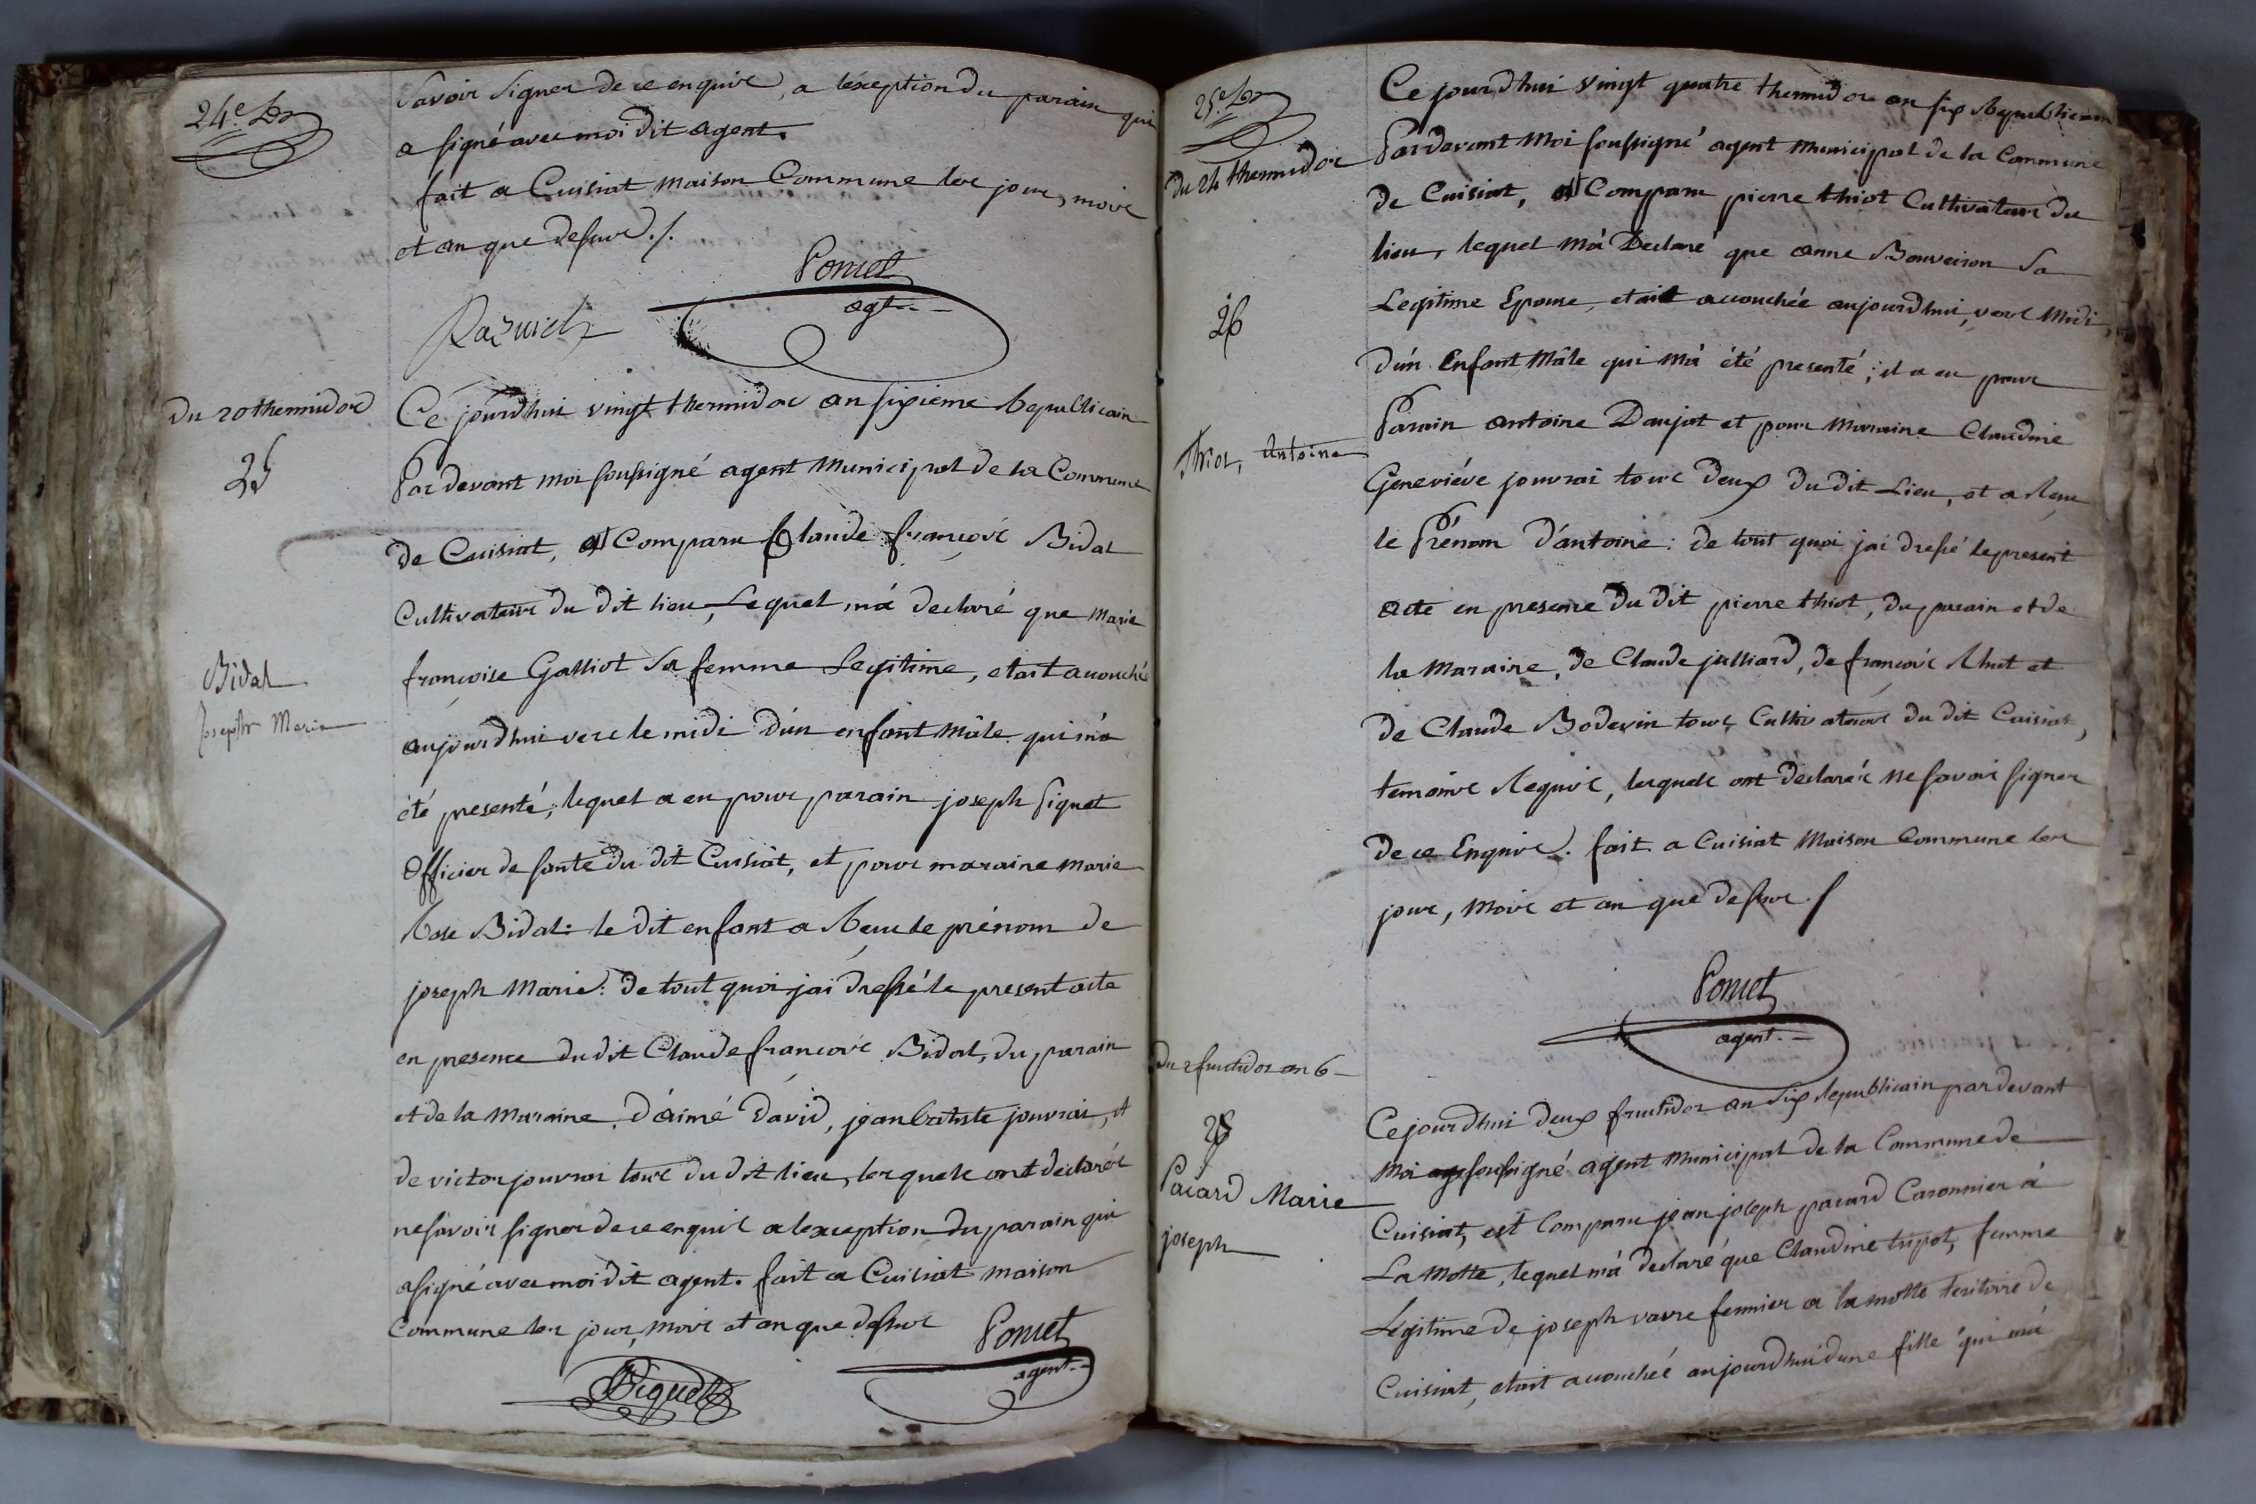 24e Do
Savoir Signer de ce enquis, a l'éxeption du parain qui
a signé avec moi dit agent.
fait a Cuisiat maison Commune les jour, mois
et an que dessus ./.
Poncet
agt
du 20 thermidor
25
Bidal
Joseph Marie
Ce jourd'hui vingt thermidor an sixieme Republicain
Par devant moi soussigné agent Municipal de la Commune
de Cuisiat, est Comparu Claude françois Bidal
Cultivateur du dit lieu, Lequel m'a declaré que Marie
françoise Galliot sa femme Legitime, etait accouché
aujourd'hui vers le midi d'un enfant Mâle qui m'a
été presenté; lequel a eu pour parain joseph Piquet
Officier de santé du dit Cuisiat, et pour maraine marie
Rose Bidal: le dit enfant a Recu le prénom de
joseph Marie: de tout quoi jai dressé le present acte
en presence du dit Claude francois Bidal, du parain
et de la Maraine, d'aimé david, jean batiste jouvrai, et
de victor jouvrai tous du dit lieu, lesquels ont declarés
ne savoir signer de ce enquis a lexception du parain qui
a signé avec moi dit agent. fait a Cuisiat maison
Commune les jour, mois et an que dessus
Poncet
agent
Piquet
25e Do
du 24 thermidor
26
Thiot, Antoine
Ce jourd'hui vingt quatre thermidor an six Republicain
Pardevant Moi soussigné agent Municipal de la Commune
de Cuisiat, est Comparu pierre thiot Cultivateur du
lieu, lequel m'a Declaré que anne Bouveiron Sa
Legitime Epouse, etait accouchée aujourd'hui, vers Midi,
d'un Enfant Mâle qui m'a été presenté; il a eu pour
Parain antoine Daujat et pour Maraine Claudine
Geneviéve jouvrai tous deux du dit Lieu, et a Recu
le Prénom d'antoine: de tout quoi jai dressé le present
acte en presence du dit pierre thiot, du parain et de
la Maraine, de Claude julliard, de françois Rhut et
de Claude Bodevin tous Cultivateurs du dit Cuisiat,
temoins Requis, lesquels ont declarés ne savoir signer
de ce Enquis. fait a Cuisiat Maison Commune les
jour, Mois et an que dessus ./
Poncet
agent
du 2 fructidor an 6
28
Pacard Marie
joseph
Ce jourd'hui deux fructidor an Six Republicain par devant
Moi soussigné agent Municipal de la Commune de
Cuisiat, est Comparu jean joseph pacard Caronnier á
La Motte, lequel m'a declaré que Claudine tupot, femme
Legitime de joseph vavre fermier a la motte teritoire de
Cuisiat, etait accouchée aujourd'hui d'une fille qui m'a